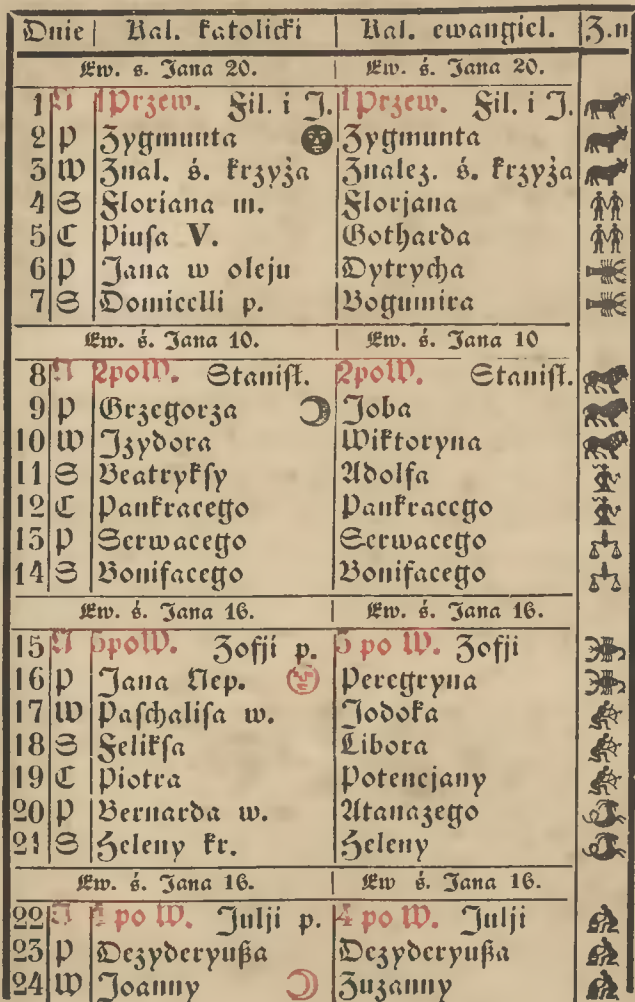 Dnie Kal. katolicki Kal. ewangiel. Z.n
Ew. s. Jana 20. Ew. ś. Jana 20.
1 N 1 Przew. Fil. i J. 1 Przew. Fil. i J.
2 P Zygmunta Zygmunta
3 W Znal. ś. krzyża Znalez. ś. krzyża
4 S Floriana m. Florjana
5 C Piusa V. Gotharda
6 P Jana w oleju Dytrycha
7 S Domicelli p. Bogumira
Ew. ś. Jana 10. Ew. ś. Jana 10
8 N 2poW. Stanisł. 2poW. Stanisł.
9 P Grzegorza Joba
10 W Izydora Wiktoryna
11 S Beatryksy Adolfa
12 C Pankracego Pankracego
13 P Serwacego Serwacego
14 S Bonifacego Bonifacego
Ew. ś. Jana 16. Ew. ś. Jana 16.
15 N 3poW. Zofji p. 3 po W. Zofji
16 P Jana Nep. Peregryna
17 W Paschalisa w. Jodoka
18 S Feliksa Libora
19 C Piotra Potencjany
20 P Bernarda w. Atanazego
21 S Heleny kr. Heleny
Ew. ś. Jana 16. Ew ś. Jana 16.
22 N 4 po W. Julji p. 4 po W. Julji
23 P Dezyderyußa Dezyderyußa
24 W Joanny Zuzanny